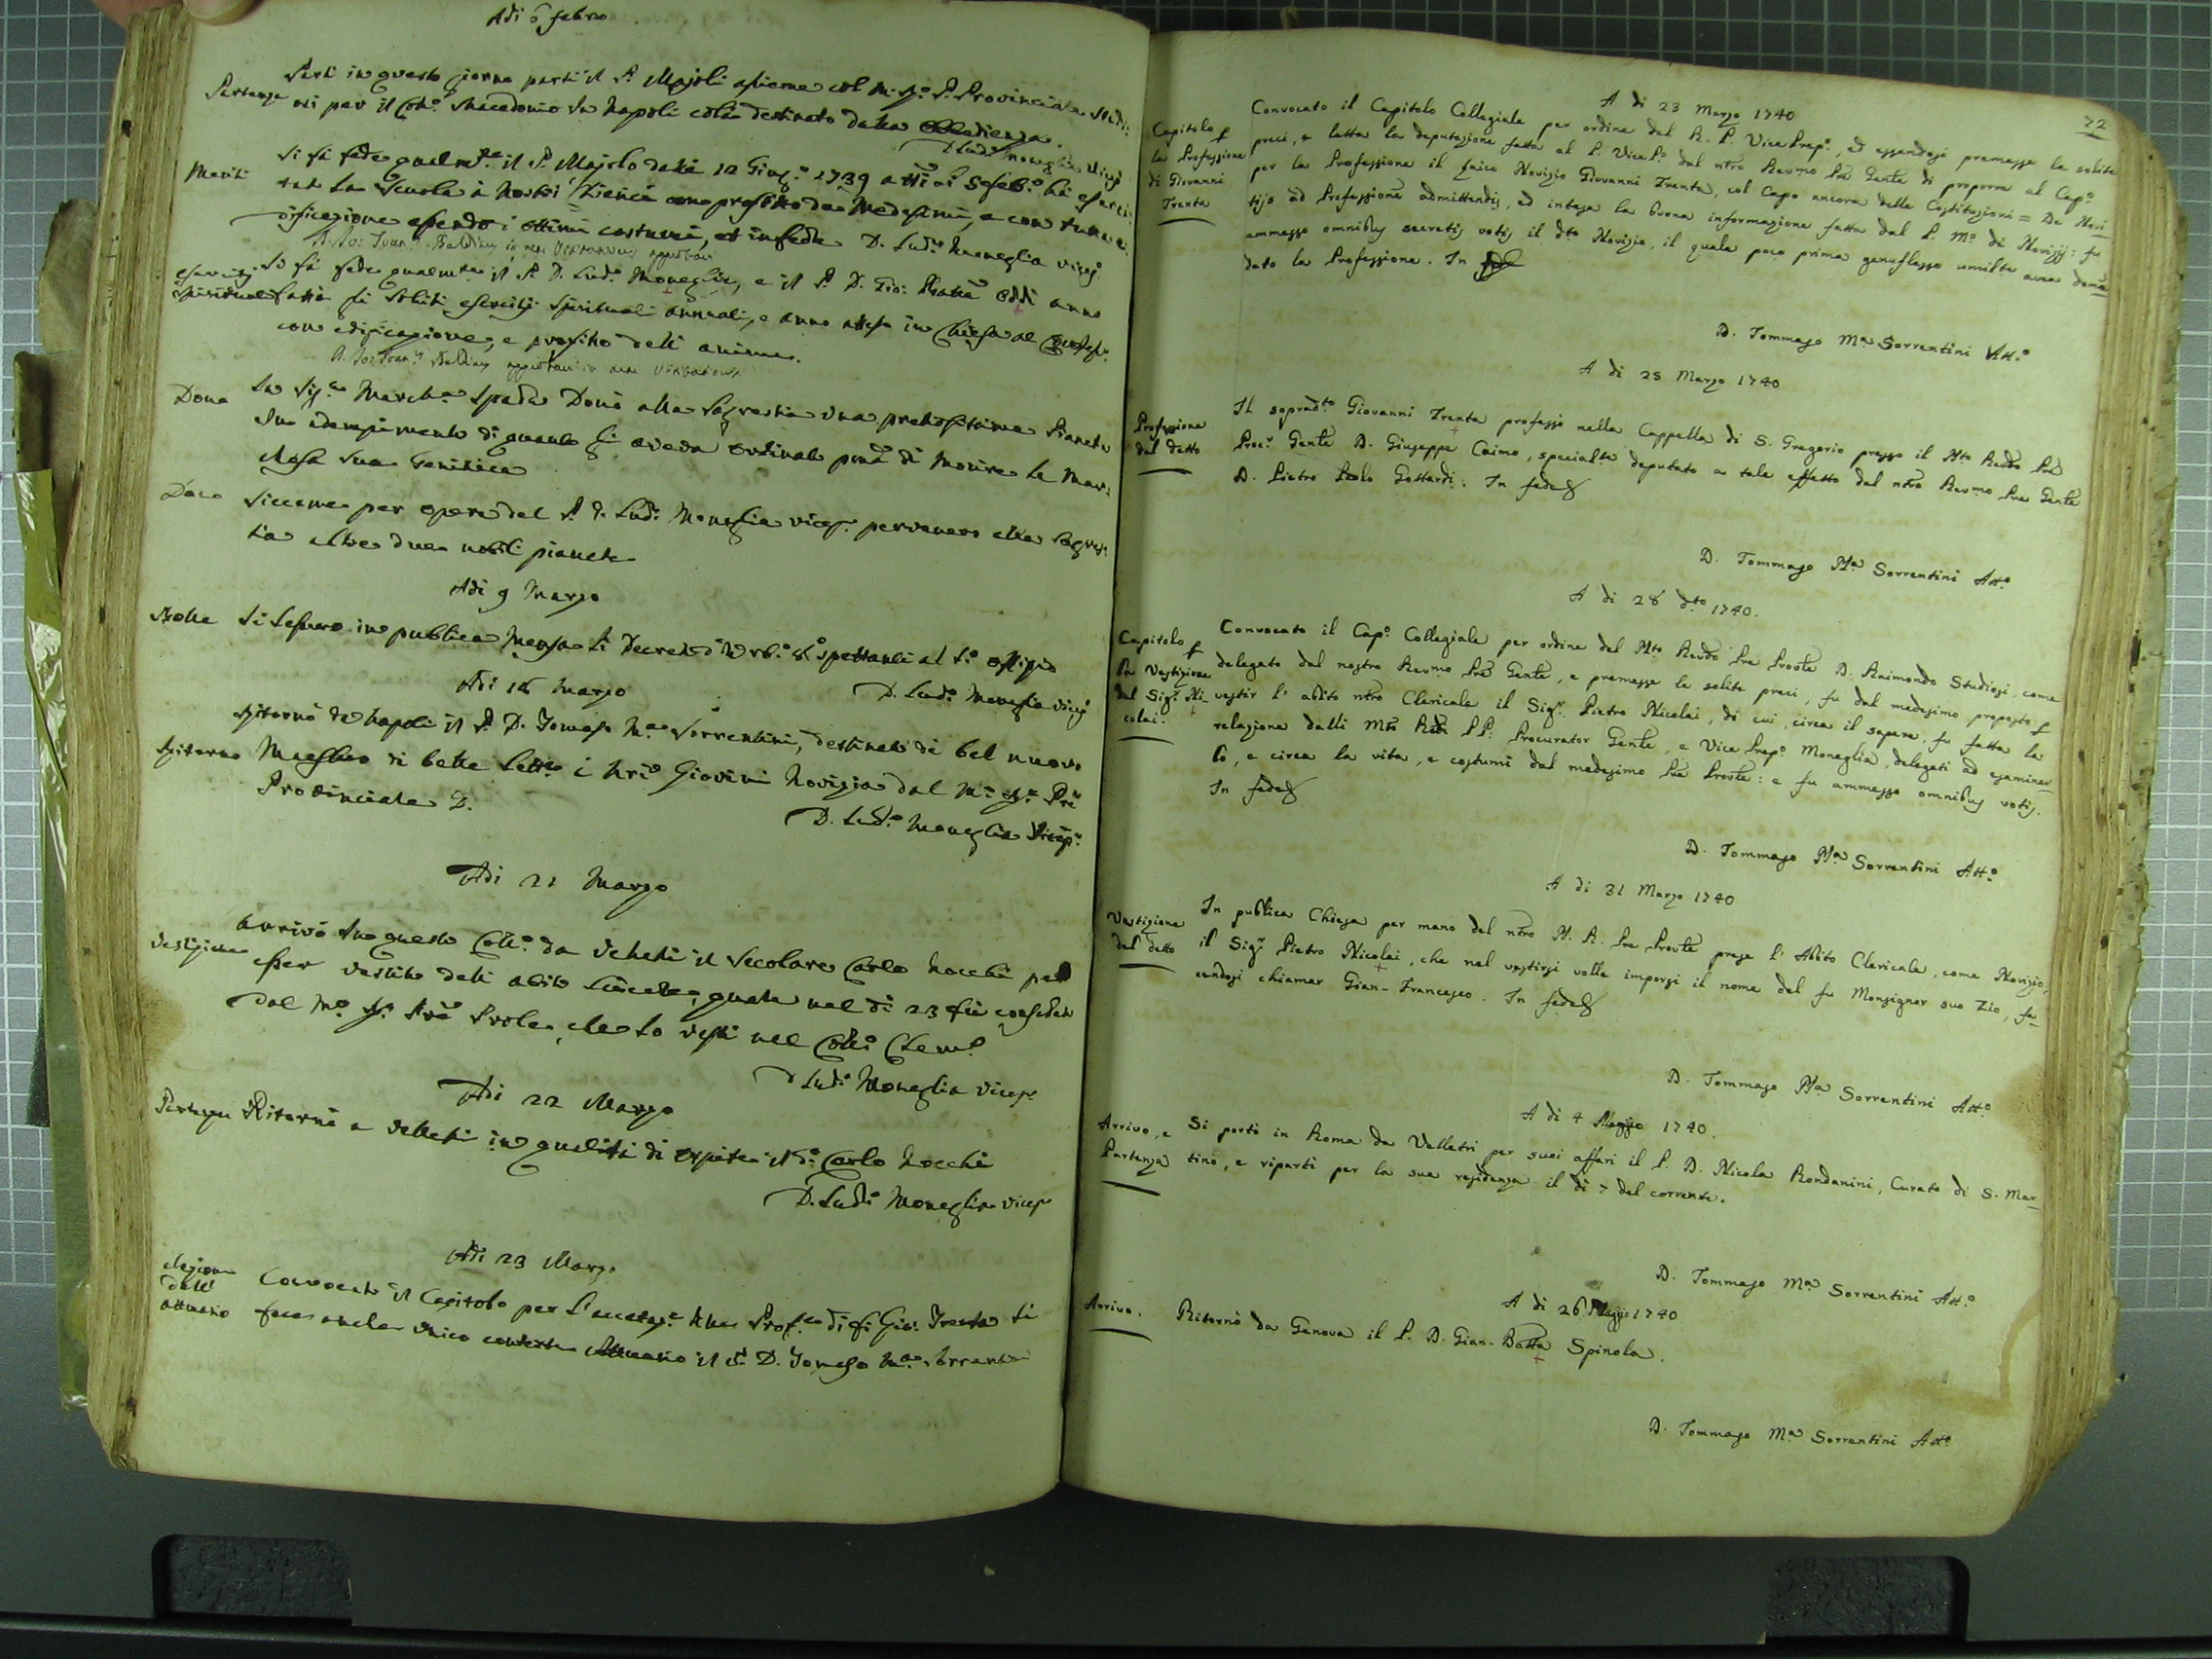 Adi 6 febro
Partenza
Partì in questo giorno partì il P. Majoli assieme col M. R. P. Provinciale Studi:
osi per il Coll.o Macedonio in Napoli colà destinato dalla Obbedienza.
D. Lud.o Moneglia Vicep.
Meriti
Si fà fede qualm.te il P. Majolo dalli 12 Giug.o 1739 a tti 6 Febb.o hà eserci:
tato la Scuola à nostri con profitto de Medesimi, e con tutta e:
dificazione essendo i ottimi costumi, et in fede D. Lud.o Moneglia vicep.
esercizi
spirituali
Si fà fede qualmte il P. D. Lud.o Moneglia, e il P. D. Gio: Batta Oddi anno
fatto li soliti esercitij spirituali annuali, e anno atteso in Chiesa al Confess.o
con edificazione, e profitto dell anime.
Dono
La Sig.ra March.a Spada Donò alla Sagrestia una pretiosissima Pianeta
in adempimento di quanto li aveva ordinato pma di morire la Mar:
chesa sua Genitrice
Dono
Siccome per opera del P. D. Lud.o Moneglia vicep. pervenero alla Sagres:
tia altre due nobili pianete
Adi 9 Marzo
Bolle
Si lessero in publica Mensa li Decreti d'Urb.o 8.o spettanti al S.o Offizio
D. Lud.o Moneglia vicep.
Adi 16 Marzo
Ritorno
Ritornò da Napoli il P. D. Tomaso M.a Sorrentini, destinato di bel nuovo
Maestro di belle Lett.e i nri Giovini Novizi dal M. R. Pre
Provinciale D.
D. Lud.o Moneglia Vicep.
Adi 21 Marzo
Vestizione
Arrivò in questo Coll.o da Velletri il Secolare Carlo Nocchi per
esser vestito dell abito quale nel dì 23 fù
dal M.o R. Pre Prole, che lo vestì nel Coll.o Clem.o
D. Lud.o Moneglia vicep.
Adi 22 Marzo
Partenza
Ritornò a Velletri in qualità di ospite il d.o Carlo Nocchi
D. Lud.o Moneglia vicep.
Adi 23 Marzo
elezione
dell'
attuario
Convocato il Capitolo per l'accetaz.e alla Prof.ne di Gio: Trenta si
fece anche Attuario il P. D. Tomaso M.a Sorrentini
72
A di 23 Marzo 1740
Capitolo p
la Professione
di Giovanni
Trenta
Convocato il Capitolo Collegiale per ordine del R. P. Vice Prep.o, ed essendosi premesse le solite
preci, e letta la deputazione fatta al P. Vice P.o dal nro Revmo Pre Genle di proporre al Cap.o
per la Professione il unico Novizio Giovanni Trenta, col Capo ancora delle Costituzioni = De Novi-
tijs ad Professionē admittendis, ed intesa la buona informazione fatta dal P. M.o di Novizij: fu
ammesso omnibus secretis votis il dto Novizio, il quale poco prima genuflesso umilte avea doman-
dato la Professione. In fede
D. Tommaso M.a Sorrentini Att.o
A di 25 Marzo 1740
Professione
del detto
Il soprad.to Giovanni Trenta professò nella Cappella di S. Gregorio presso il Mto Revdo Pre
Proc.r Genle D. Giuseppe Caimo, specialte deputato a tale effetto dal nro Revmo Pre Genle
D. Pietro Paolo Gottardi. In fede &
D. Tommaso M.a Sorrentini Att.o
A di 28 d.to 1740.
Capitolo p
la Vestizione
del Sig.r Ni-
colai.
Convocato il Cap.o Collegiale per ordine del Mto Revdo Pre Provle D. Raimondo Studiosi, come
delegato dal nostro Revmo Pre Genle, e premesse le solite preci, fu dal medesimo proposto p
vestir l'abito nro Clericale il Sig.r Pietro Nicolai, di cui, circa il sapere, fu fatta la
relazione dalli Mto Rdi PP. Procurator Genle, e Vice Prep.o Moneglia, delegati ad esaminar-
lo, e circa la vita, e costumi dal medesimo Pre Provle: e fu ammesso omnibus votis.
In fede &
D. Tommaso M.a Sorrentini Att.o
A di 31 Marzo 1740
Vestizione
del detto
In publica Chiesa per mano del nro M. R. Pre Provle prese l'Abito Clericale, come Novizio,
il Sig.r Pietro Nicolai, che nel vestirsi volle imporsi il nome del fu Monsignor suo Zio, fa-
cendosi chiamar Gian-Francesco. In fede &
D. Tommaso M.a Sorrentini Att.o
A di 4 Maggio 1740.
Arrivo, e
Partenza
Si portò in Roma da Velletri per suoi affari il P. D. Nicola Rondanini, Curato di S. Mar-
tino, e ripartì per la sua residenza il dì 7 del corrente.
D. Tommaso M.a Sorrentini Att.o
A di 26 Maggio 1740
Arrivo.
Ritornò da Genova il P. D. Gian-Batta Spinola.
D. Tommaso M.a Sorrentini Att.o